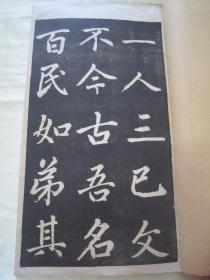 一人三已文
不今古吾名
百民如弟其